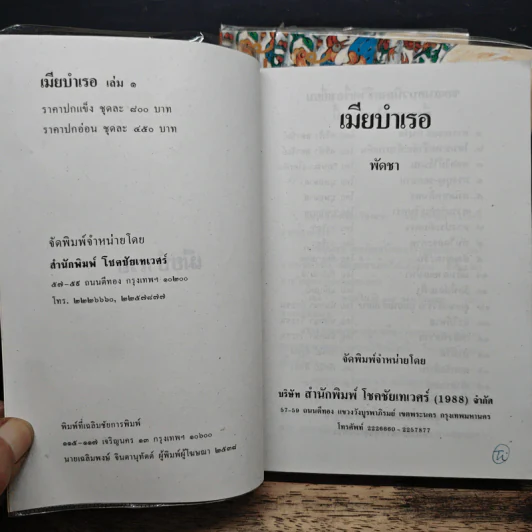 เมียบำเรอ เล่ม ๑
ราคาปกแข็ง ชุดละ ๘๐๐ บาท
ราคาปกอ่อน ชุดละ ๔๕๐ บาท
จัดพิมพ์จำหน่ายโดย
สำนักพิมพ์ โชคชัยเทเวศร์
๕๗-๕๙ ถนนดีทอง กรุงเทพฯ ๑๐๒๐๐
โทร. ๒๒๒๖๖๖๐, ๒๒๕๗๘๗๗
พิมพ์ที่เฉลิมชัยการพิมพ์
๑๑๕-๑๑๗ เจริญนคร ๑๓ กรุงเทพฯ ๑๐๖๐๐
นายเฉลิมพงษ์ จินดานุทัดด์ ผู้พิมพ์ผู้โฆษณา ๒๕๓๘
เมียบำเรอ
พัดชา
จัดพิมพ์จำหน่ายโดย
บริษัท สำนักพิมพ์ โชคชัยเทเวศร์ (1988) จำกัด
57-59 ถนนดีทอง แขวงวังบูรพาภิรมย์ เขตพระนคร กรุงเทพมหานคร
โทรศัพท์ 2226660 - 2257877